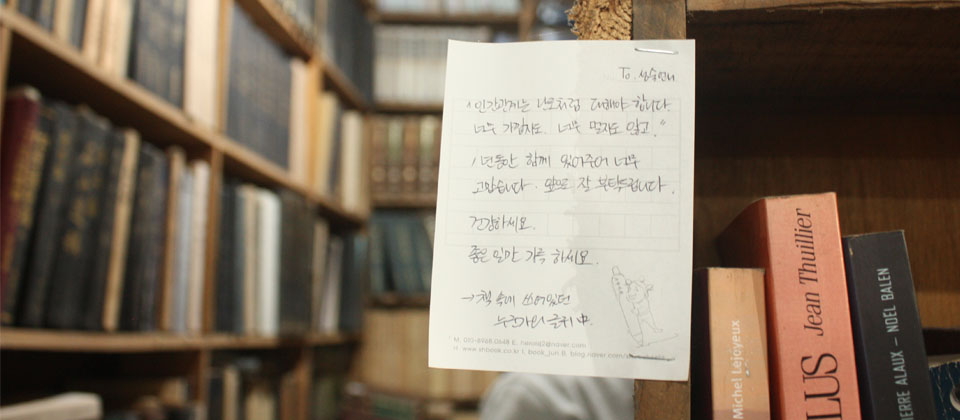 To. 상습언니
"인간관계는 난로처럼 대해야 합니다
너무 가깝지도. 너무 멀지도 않고."
1년동안 함께 있어주어 너무
고맙습니다. 앞으로 잘 부탁드립니다.
건강하세요.
좋은 일만 가득 하세요.
→ 책 속에 쓰여있던
누군가의 글귀 中.
www.shbook.co.kr
Michel Lejoyeux
LUS Jean Thuillier
PIERRE ALAUX – NOEL BALEN